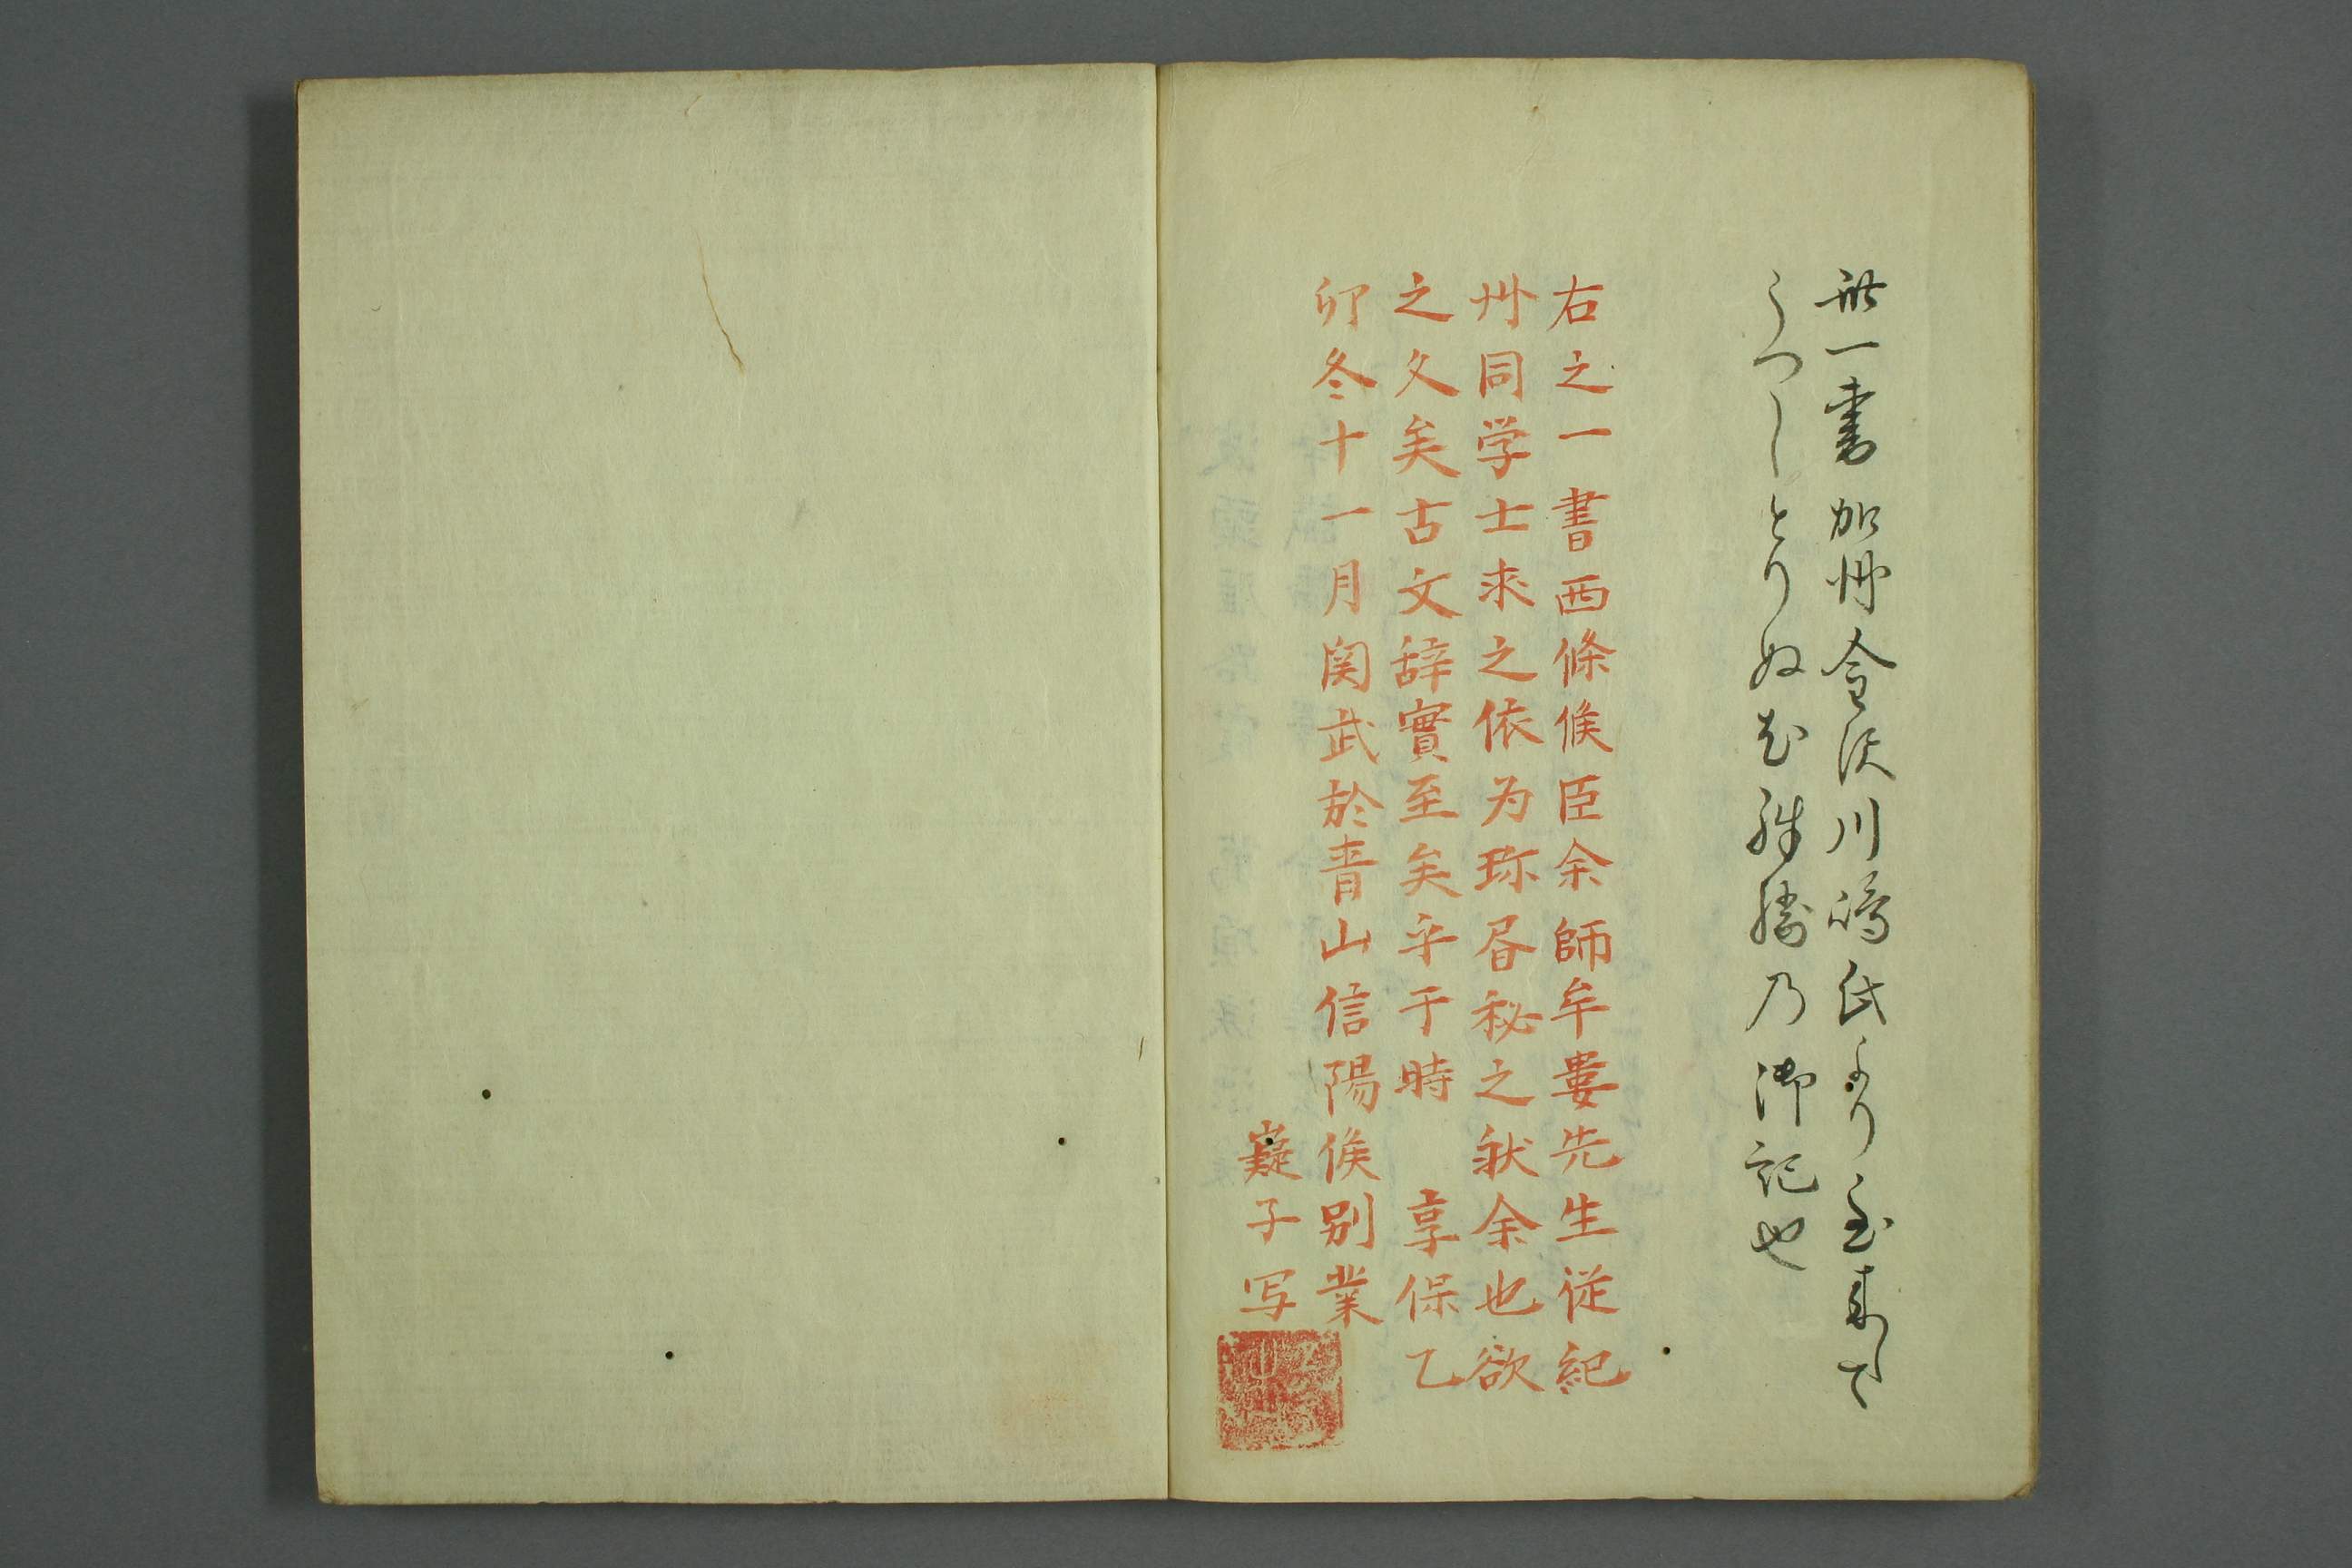 此一書加州金沢川嶋氏より到来して
うつしとりぬ尤殊勝乃御記也
右之一書西條侯臣余師牟婁先生従紀
州同学士求之依为珎昏秘之狀余也欲
之久矣古文辞實至矣乎于時　享保乙
卯冬十一月関武於青山信陽侯别業
嶷子写